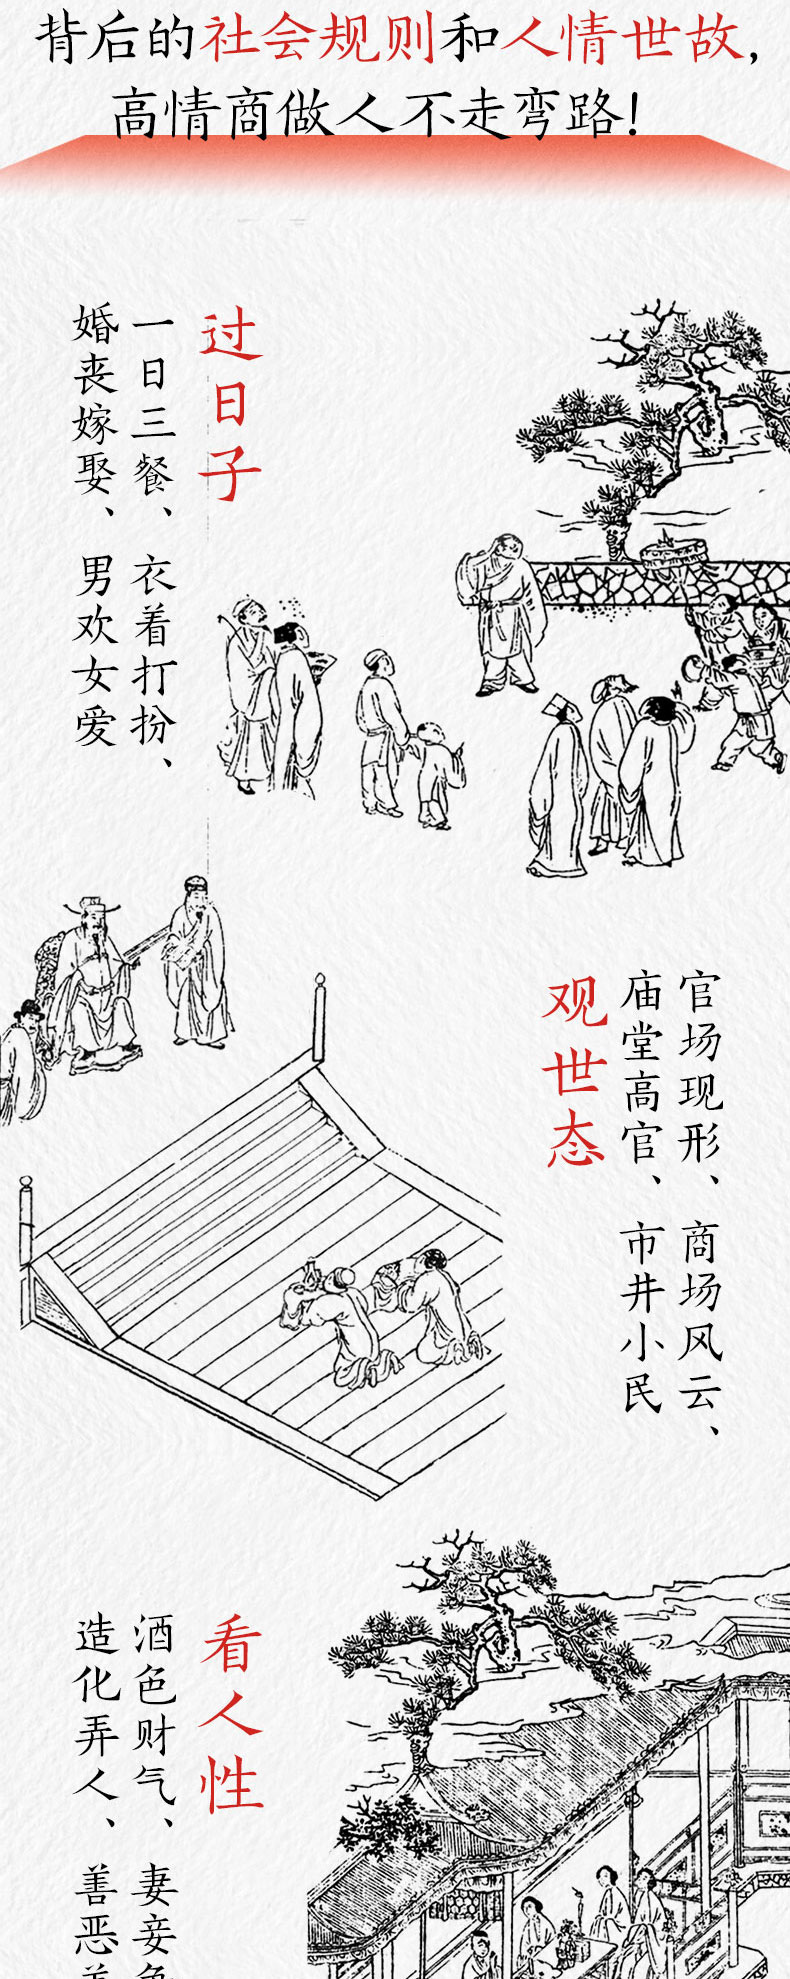 背后的社会规则和人情世故，
高情商做人不走弯路！
过日子
一日三餐、衣着打扮、
婚丧嫁娶、男欢女爱
官场现形、商场风云、
庙堂高官、市井小民
观世态
看人性
酒色财气、妻妾
造化弄人、善恶